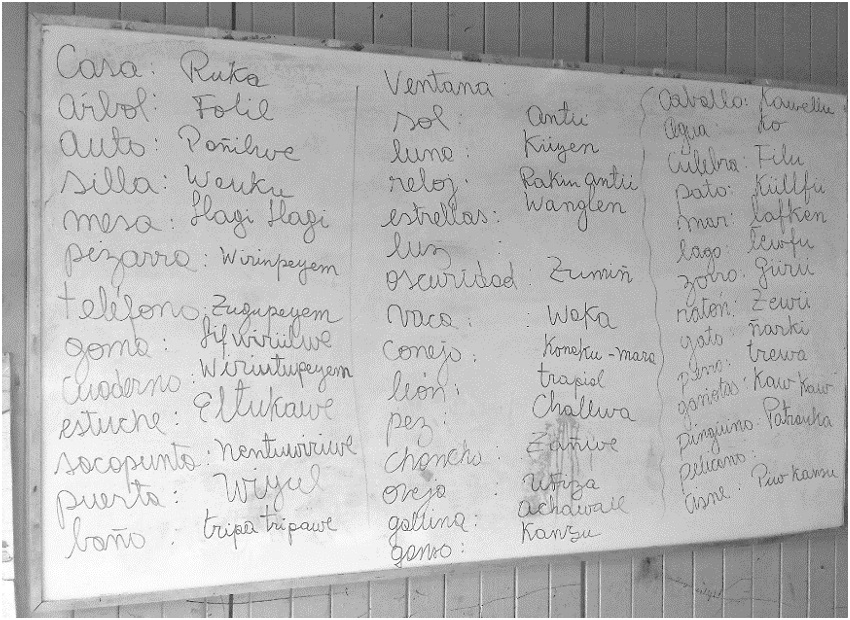 Casa: Ruka
árbol: Folil
auto: Pañilwe
silla: Wenku
mesa: Llagi Llagi
pizarra: Wirinpeyem
teléfono: Zugupeyem
goma: Ñifwiriülwe
cuaderno: Wirintupeyem
estuche: Eltukawe
sacapunta: Nentuwiriwe
puerta: Wiyul
baño: tripa tripawe
Ventana:
sol: antü
luna: Küyen
reloj: Rakin antü
estrellas: Wanglen
luz:
oscuridad: Zumiñ
vaca: Waka
conejo: Koneku - mara
león: trapial
pez: Challwa
chancho: Zañwe
oveja: Ufiza
gallina: achawall
ganso: Kanzu
Caballo: Kawellu
agua: ko
culebra: Filu
pato: Küllfü
mar: lafken
lago: lewfu
zorro: gürü
ratón: Zewü
gato: ñarki
perro: trewa
gaviotas: Kaw Kaw
pingüino: Patranka
pelicano:
Cisne: Piw Kanzu